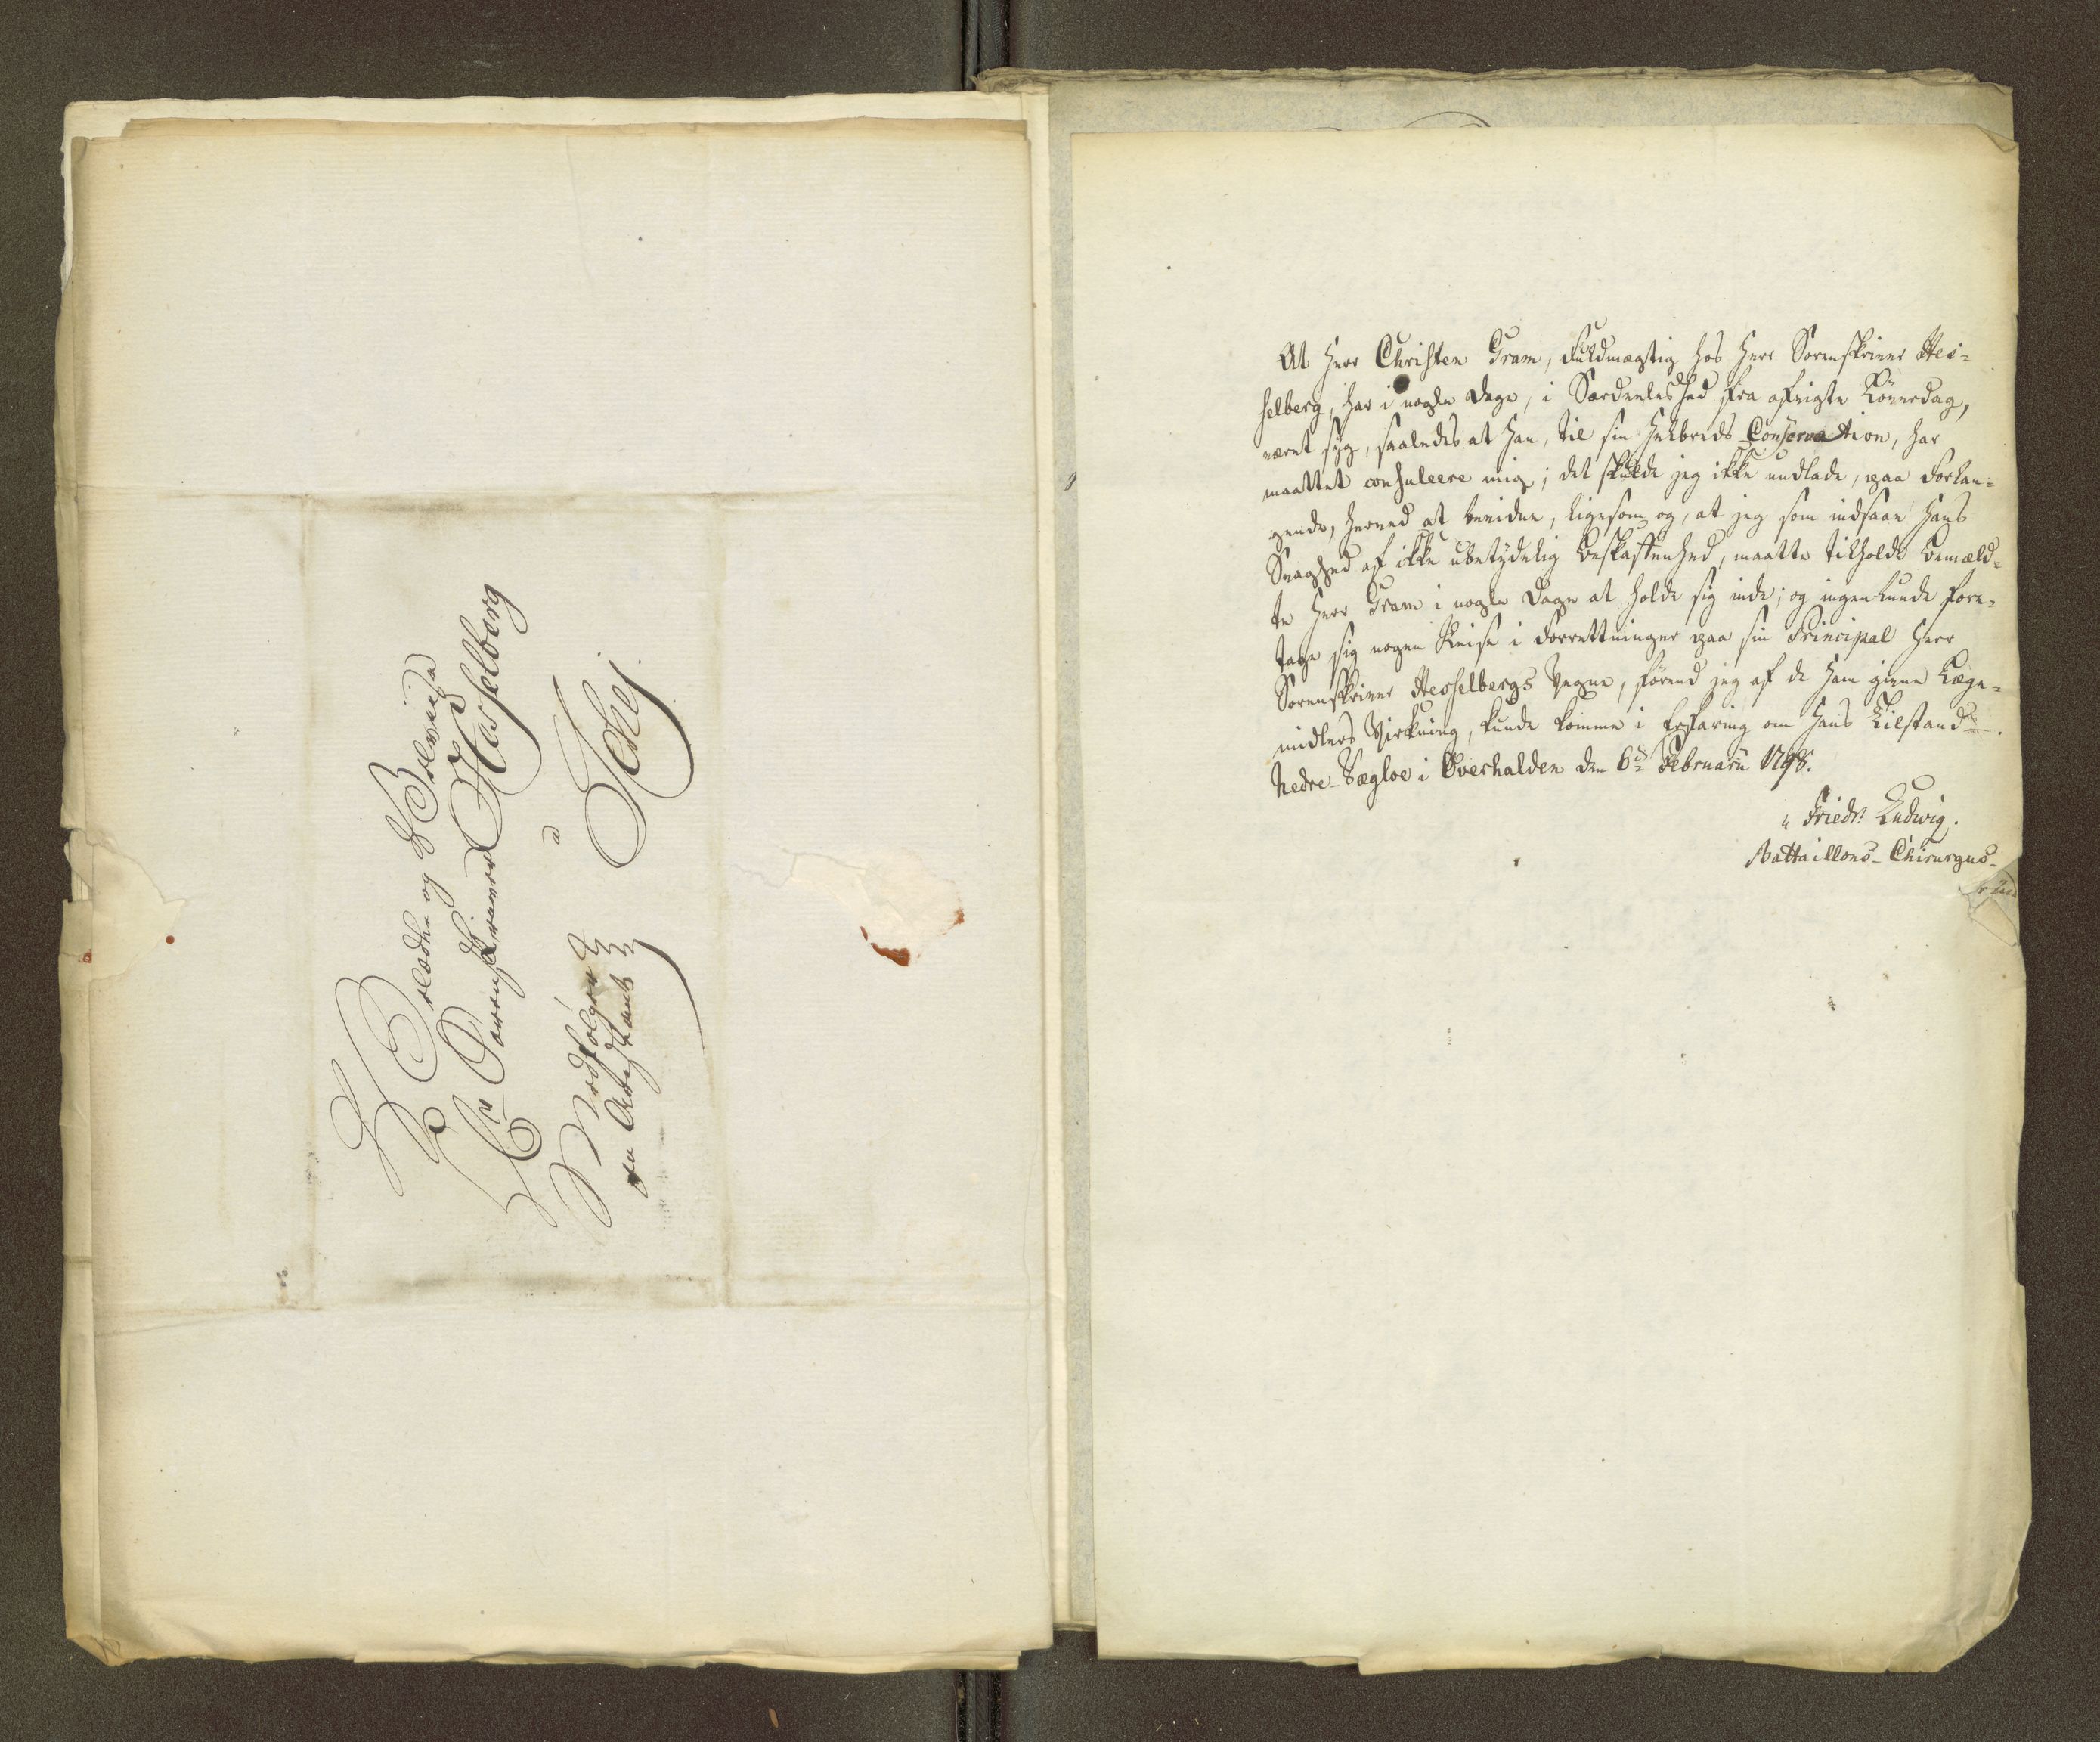 Velædle og Velviise
Hr Sorenskriver Hesselberg
a
Medfølger
en Arrestant
At Herr Christen Gram, Fuldmægtig hos Herr Sorenskriver Hes=
selberg, har i nogle Dage, i Særdeleshed fra afvigte Löverdag,
været syg, saaledes at han, til sin Helbreds Conservation, har
maattet consuleere mig; det skulde jeg ikke undlade, paa Forlan=
gende, herved at bevidne, ligesom og, at jeg som indsaae hans
Svaghed af ikke ubetydelig Beskaffenhed, maatte tilholde bemeld=
te Herr Gram i nogle Dage at holde sig inde; og ingenlunde fore=
tage sig nogen Reise i Forrettninger paa sin Principal Herr
Sorenskriver Hesselbergs Vegne, förend jeg af de ham givne Læge=
midlers Virkning, kunde komme i Erfaring om hans Tilstand.
Nedre-Sægloe i Overhalden den 6te Februarii 1798.
Friedr. Ludwig.
Battaillons-Chirurgus